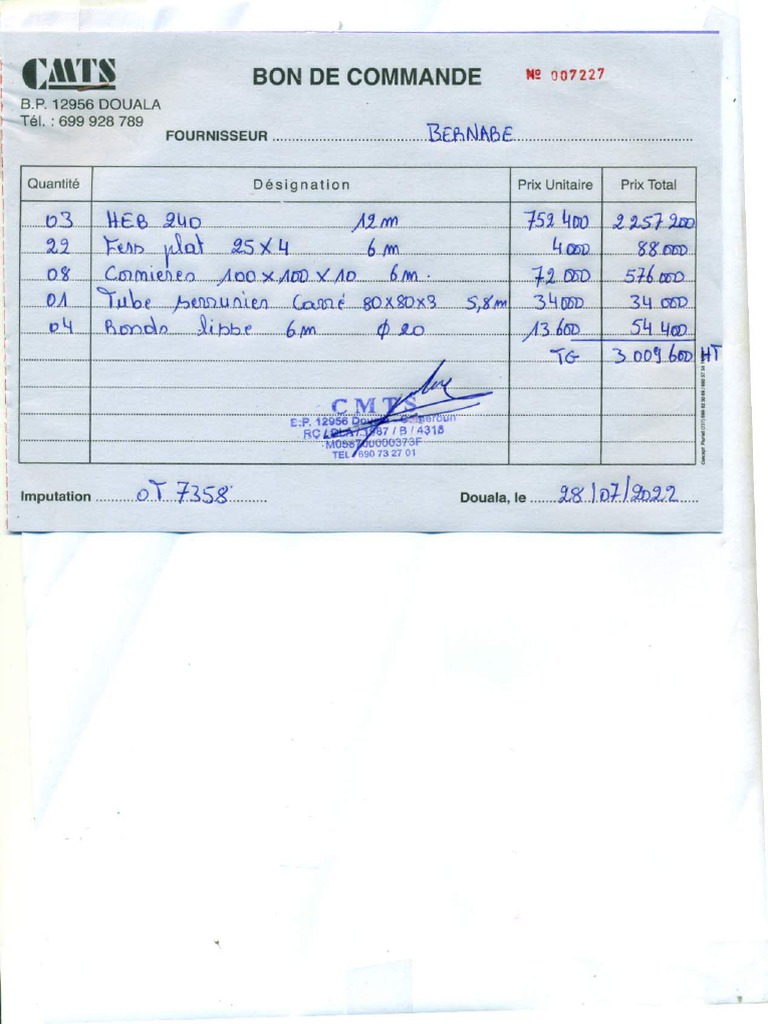 CMTS
BON DE COMMANDE Nº 007227
B.P. 12956 DOUALA
Tél. : 699 928 789
FOURNISSEUR BERNABE
Quantité Désignation Prix Unitaire Prix Total
03 HEB 240 12m 752 400 2 257 200
22 Fers plat 25X4 6m 4 000 88 000
08 Cornieres 100x100x10 6m. 72 000 576 000
01 Tube serrurier Carré 80x80x3 5,8m 34 000 34 000
04 Ronds lisse 6m φ 20 13 600 54 400
TG 3 009 600 HT
CMTS
B.P. 12956 Douala - Cameroun
RC / DLA / 1987 / B / 4318
TEL 690 73 27 01
Imputation OT 7358
Douala, le 28/07/2022